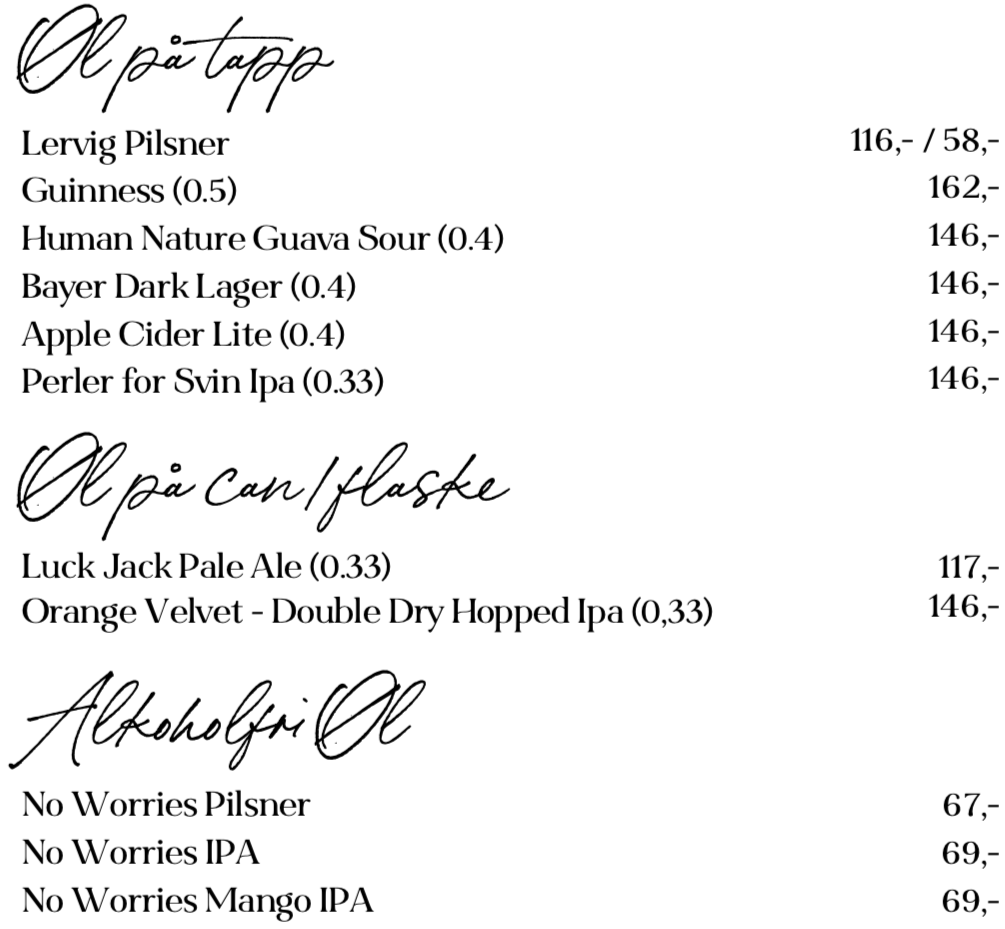 Øl på tapp
Lervig Pilsner 116,- / 58,-
Guinness (0.5) 162,-
Human Nature Guava Sour (0.4) 146,-
Bayer Dark Lager (0.4) 146,-
Apple Cider Lite (0.4) 146,-
Perler for Svin Ipa (0.33) 146,-
Øl på can/flaske
Luck Jack Pale Ale (0.33) 117,-
Orange Velvet - Double Dry Hopped Ipa (0,33) 146,-
Alkoholfri Øl
No Worries Pilsner 67,-
No Worries IPA 69,-
No Worries Mango IPA 69,-